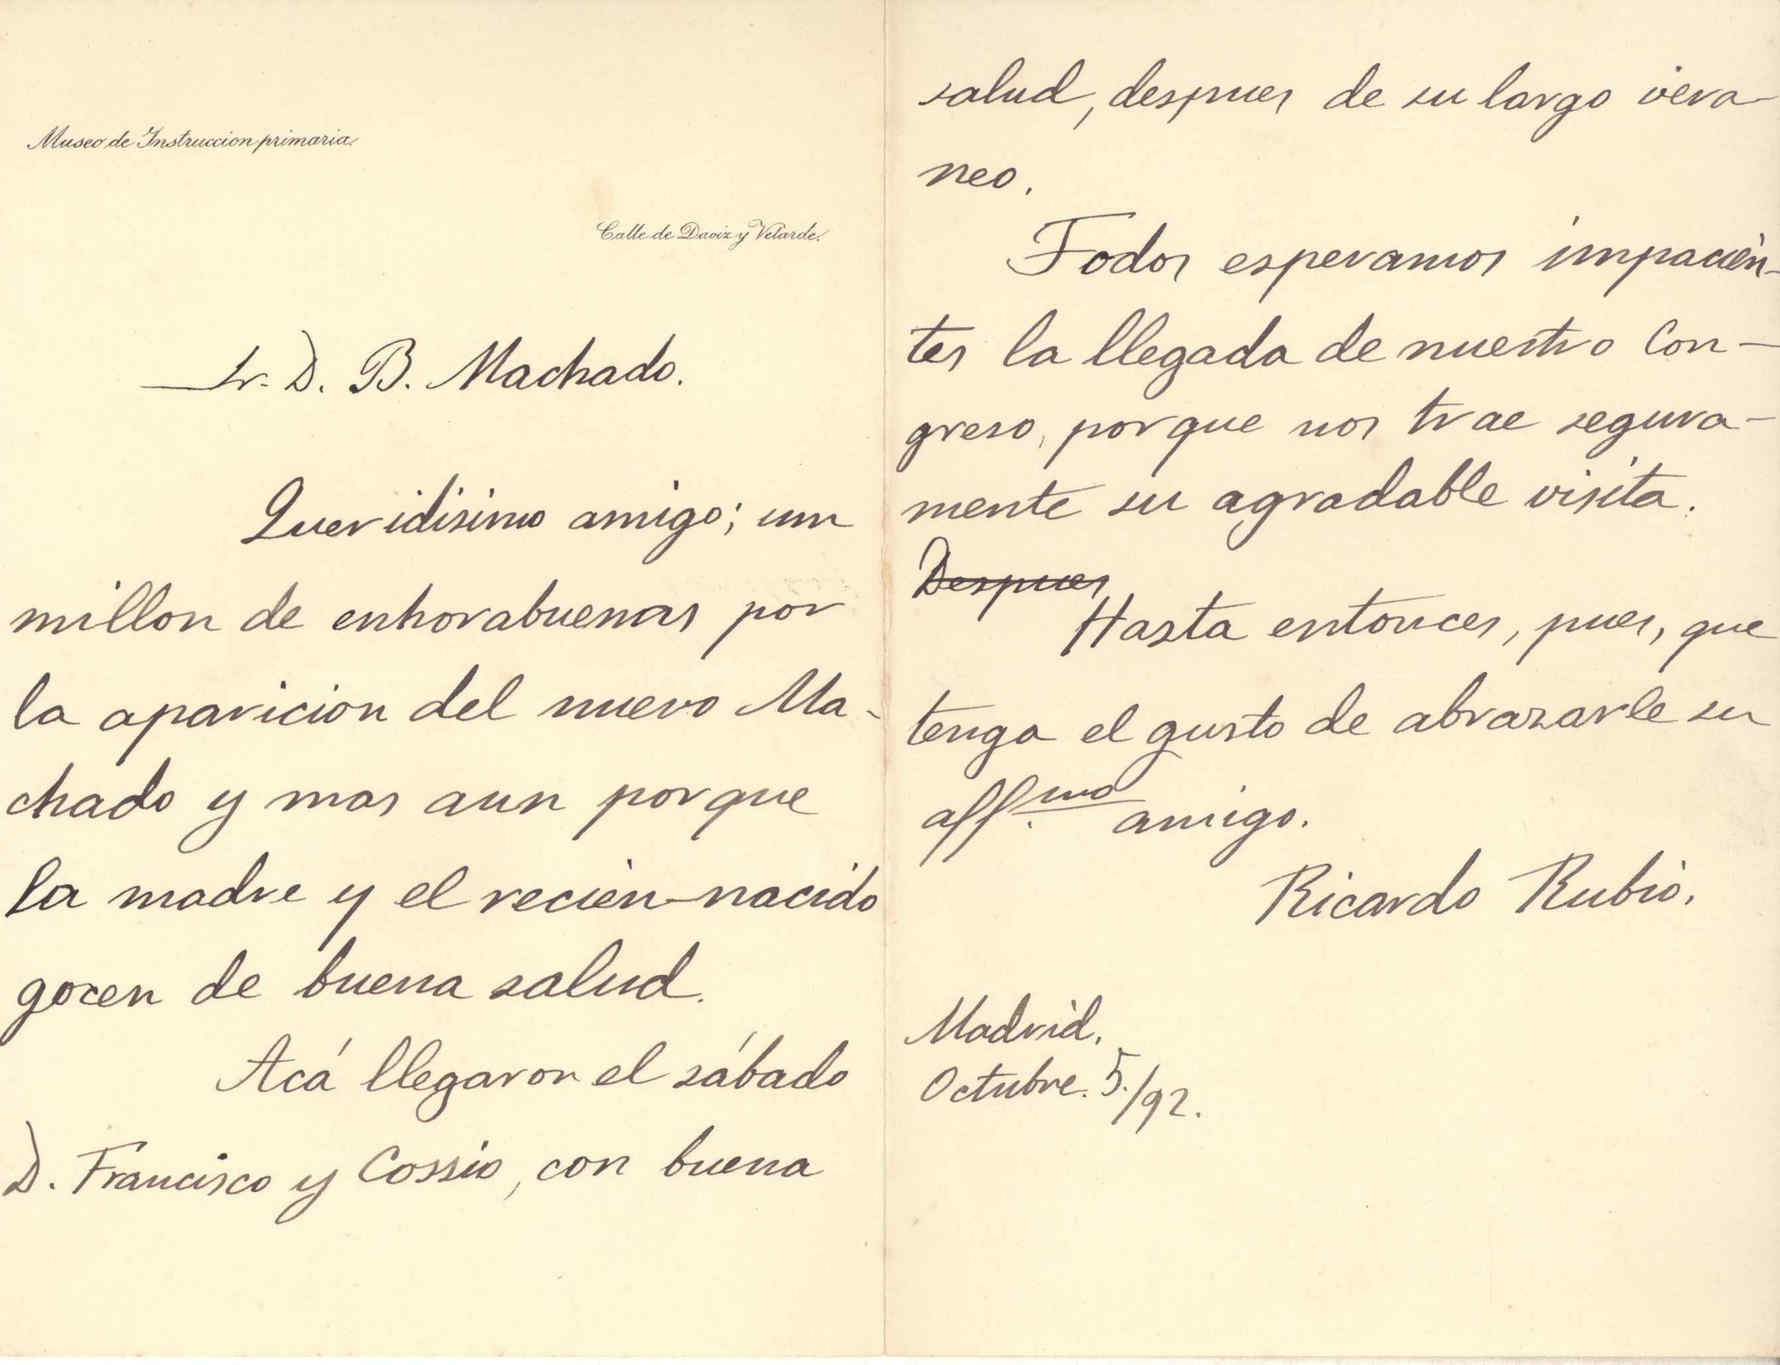 Museo de Instruccion primaria
Calle de Daoiz y Velarde.
Sr. D. B. Machado.
Queridisimo amigo; un
millon de enhorabuenas por
la aparicion del nuevo Ma-
chado y mas aun porque
la madre y el recien-nacido
gozen de buena salud.
Acá llegaron el sábado
D. Francisco y Cossio, con buena
salud, despues de su largo vera-
neo.
Todos esperamos impacien-
tes la llegada de nuestro Con-
greso, porque nos trae segura-
mente su agradable visita.
Despues
Hasta entonces, pues, que
tenga el gusto de abrazarle su
aff.mo amigo.
Ricardo Rubio.
Madrid.
Octubre. 5./92.